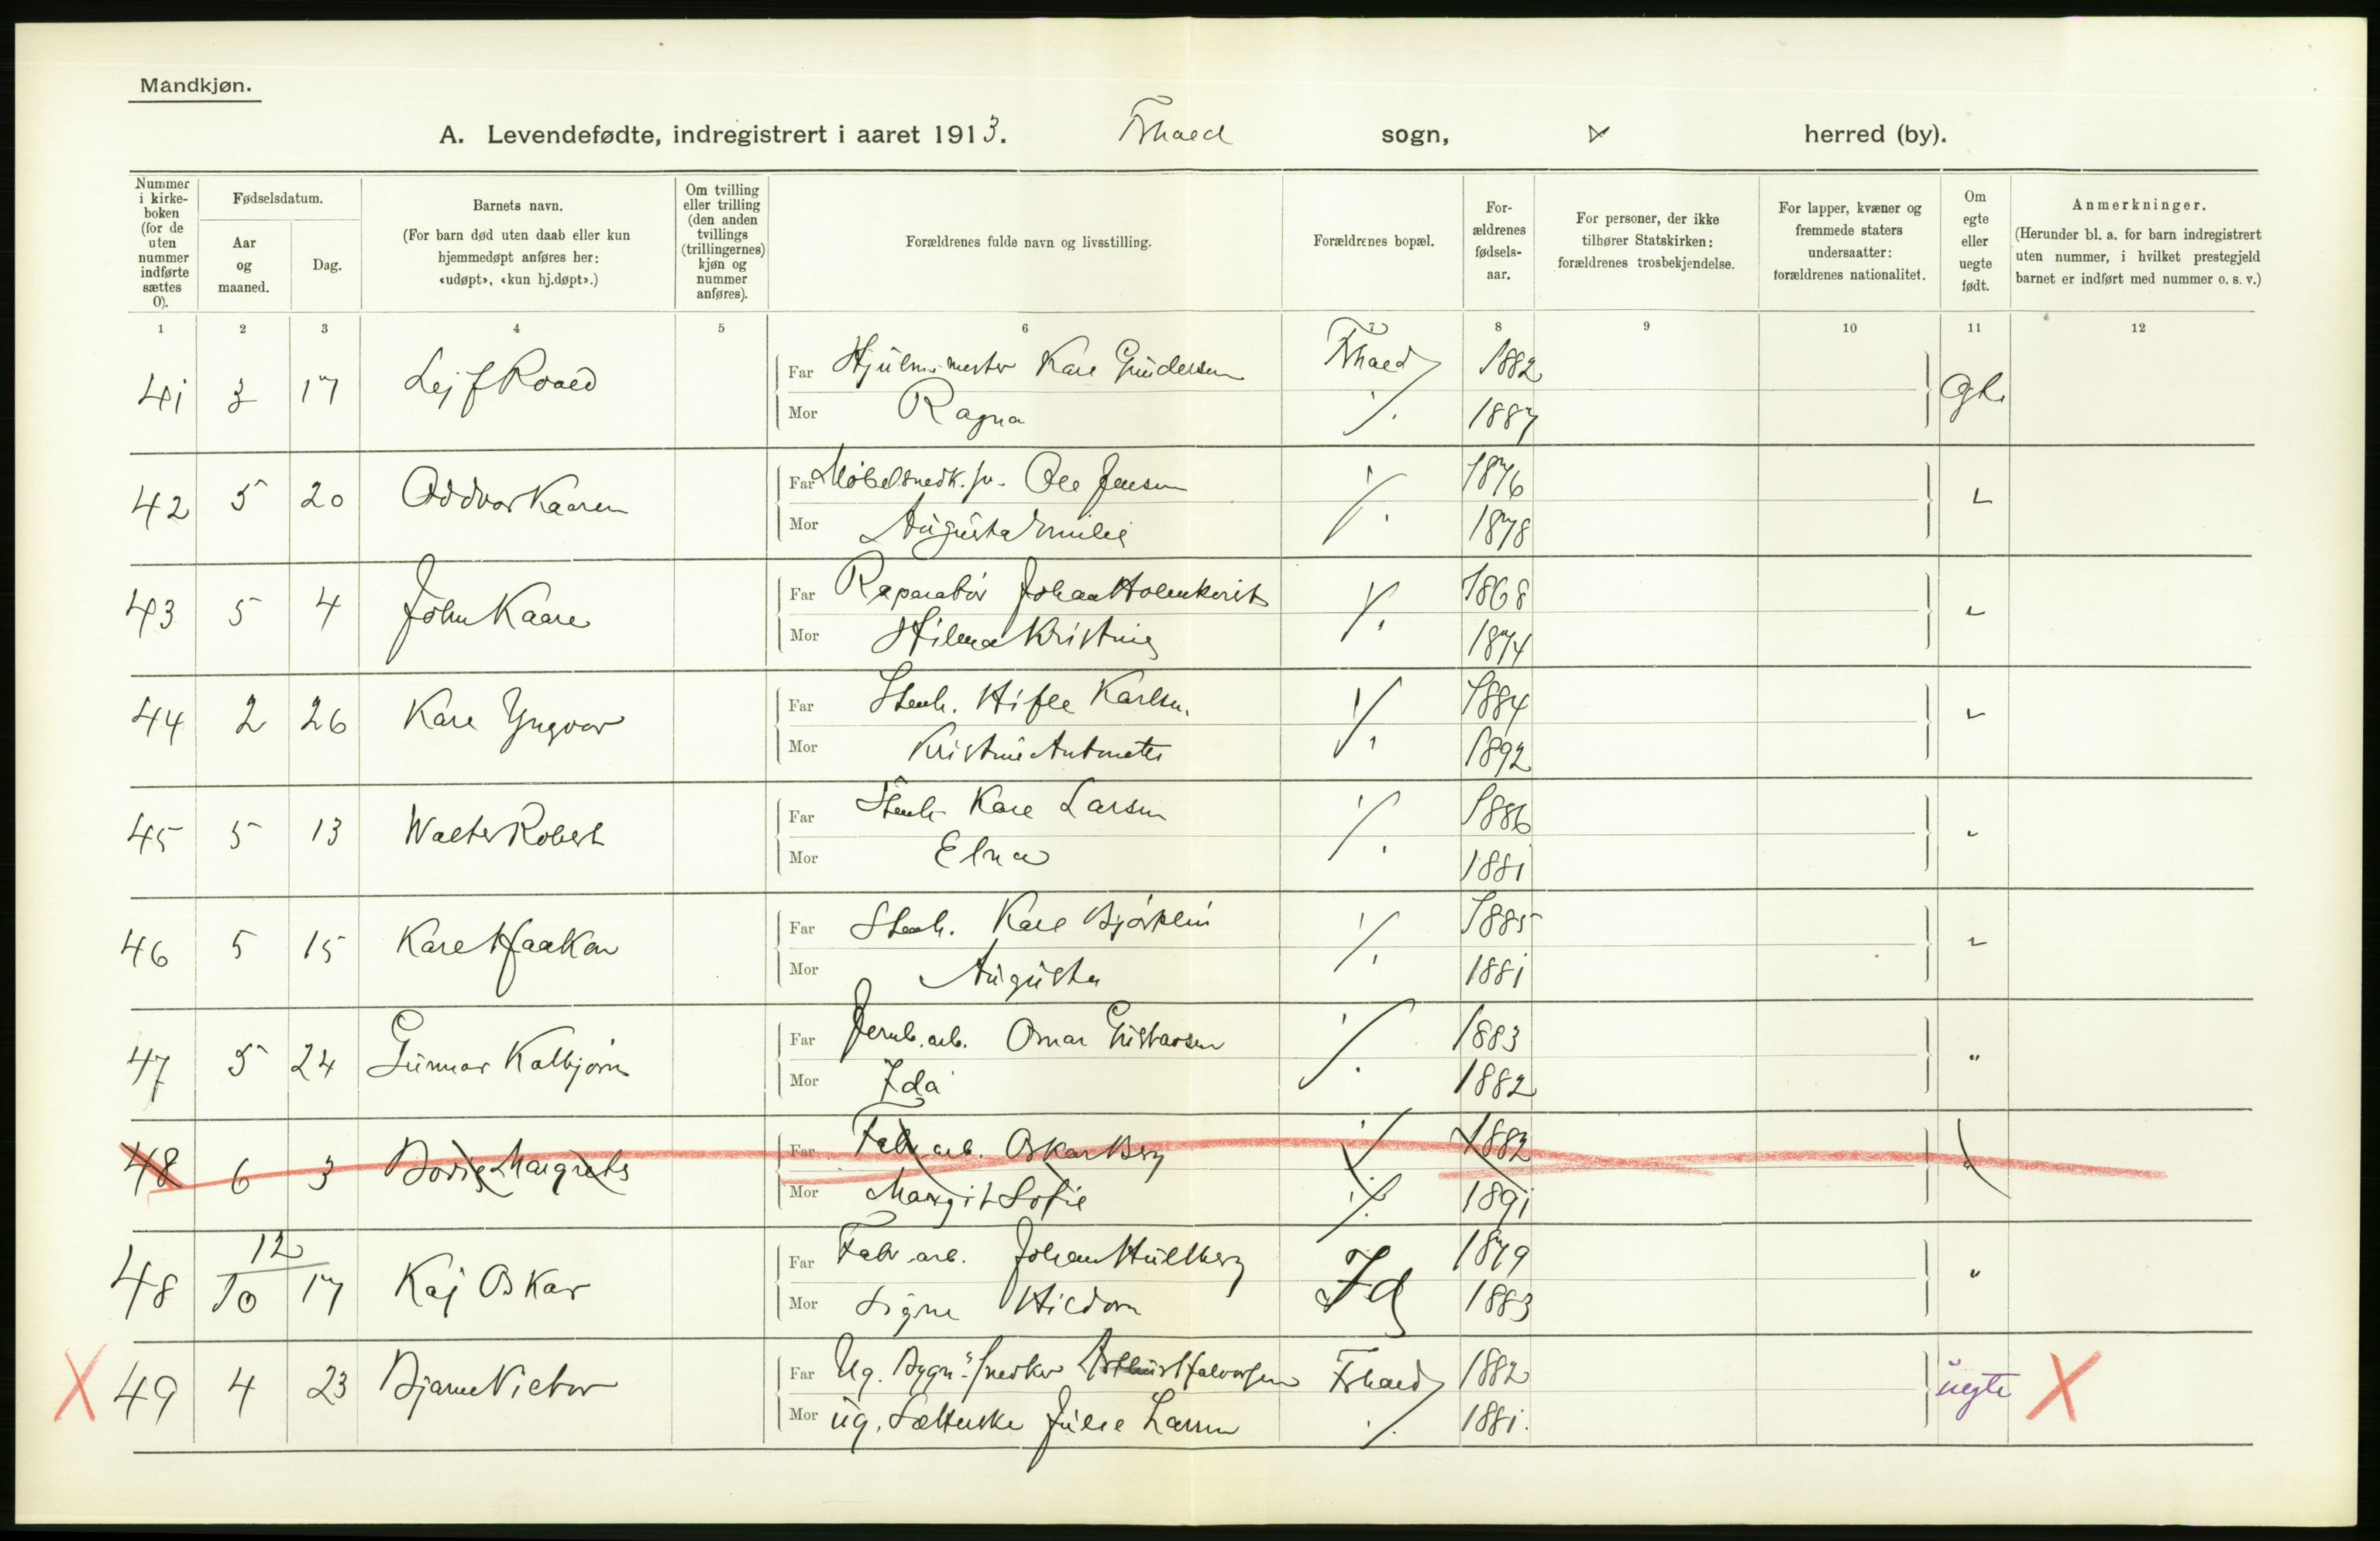 Mandkjøn.
A. Levendefødte, indregistrert i aaret 1913. Frhald sogn, herred (by).
Nummer i kirke-boken (for de uten nummer indførte sættes O).
Fødselsdatum.
Aar og maaned.
Dag.
Barnets navn.
(For barn død uten daab eller kun hjemmedøpt anføres her: «udøpt», «kun hj.døpt».)
Om tvilling eller trilling (den anden tvillings (trillingernes) kjøn og nummer anføres).
Forældrenes fulde navn og livsstilling.
Forældrenes bopæl.
For-ældrenes fødsels-aar.
For personer, der ikke tilhører Statskirken: forældrenes trosbekjendelse.
For lapper, kvæner og fremmede staters undersaatter: forældrenes nationalitet.
Om egte eller uegte født.
Anmerkninger.
(Herunder bl. a. for barn indregistrert uten nummer, i hvilket prestegjeld barnet er indført med nummer o. s. v.)
1 2 3 4 5 6 7 8 9 10 11 12
41 3 17 Leif Roald Far Karl Gundersen Frhald 1882
Mor Ragna ./. 1887
42 5 20 Oddvar Kaaren Far Møbelsnedk. Ole Jensen ./. 1876
Mor Augusta Emilie 1878
43 5 4 John Kaare Far Reparatør Johan ./. 1868
Mor Hilma Kristine 1874
44 2 26 Karl Yngvar Far Stenh. Karlsen ./. 1884
Mor Kristine Antonette 1892
45 5 13 Walter Robert Far Stenh. Karl Larsen ./. 1886
Mor Elna 1881
46 5 15 Karl Haakon Far Stenh. Karl Björklin ./. 1885
Mor Augusta 1881
47 5 24 Gunnar Kolbjørn Far Jernb.arb. Omar Gustavsen ./. 1883 "
Mor Ida 1882
48 6 3 Margrete Far Fabr.arb. Oskar Berg ./. 1882
Mor Margit Sofie ./. 1891
48 12/10 17 Kaj Oskar Far Fabr.arb. Johan Hultberg Id 1879 "
Mor Signe 1883
X 49 4 23 Bjarne Victor Far Ug. Bygn.snedker Halvorsen Frhald 1882 uegte X
Mor ug. Julie Larsen ./. 1881.